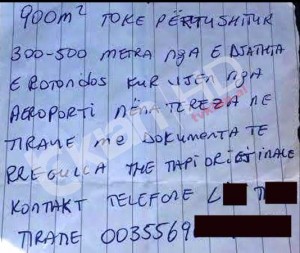 900m² TOKE PËR TU SHITUR
300-500 METRA NGA E DJATHTA
E ROTONDOS KUR VJEN NGA
AEROPORTI NËNA TEREZA NE
TIRANE ME DOKUMENTA TE
RREGULLA THE TAPI ORIGJINALE
KONTAKT TELEFONE L T
TIRANE 0035569